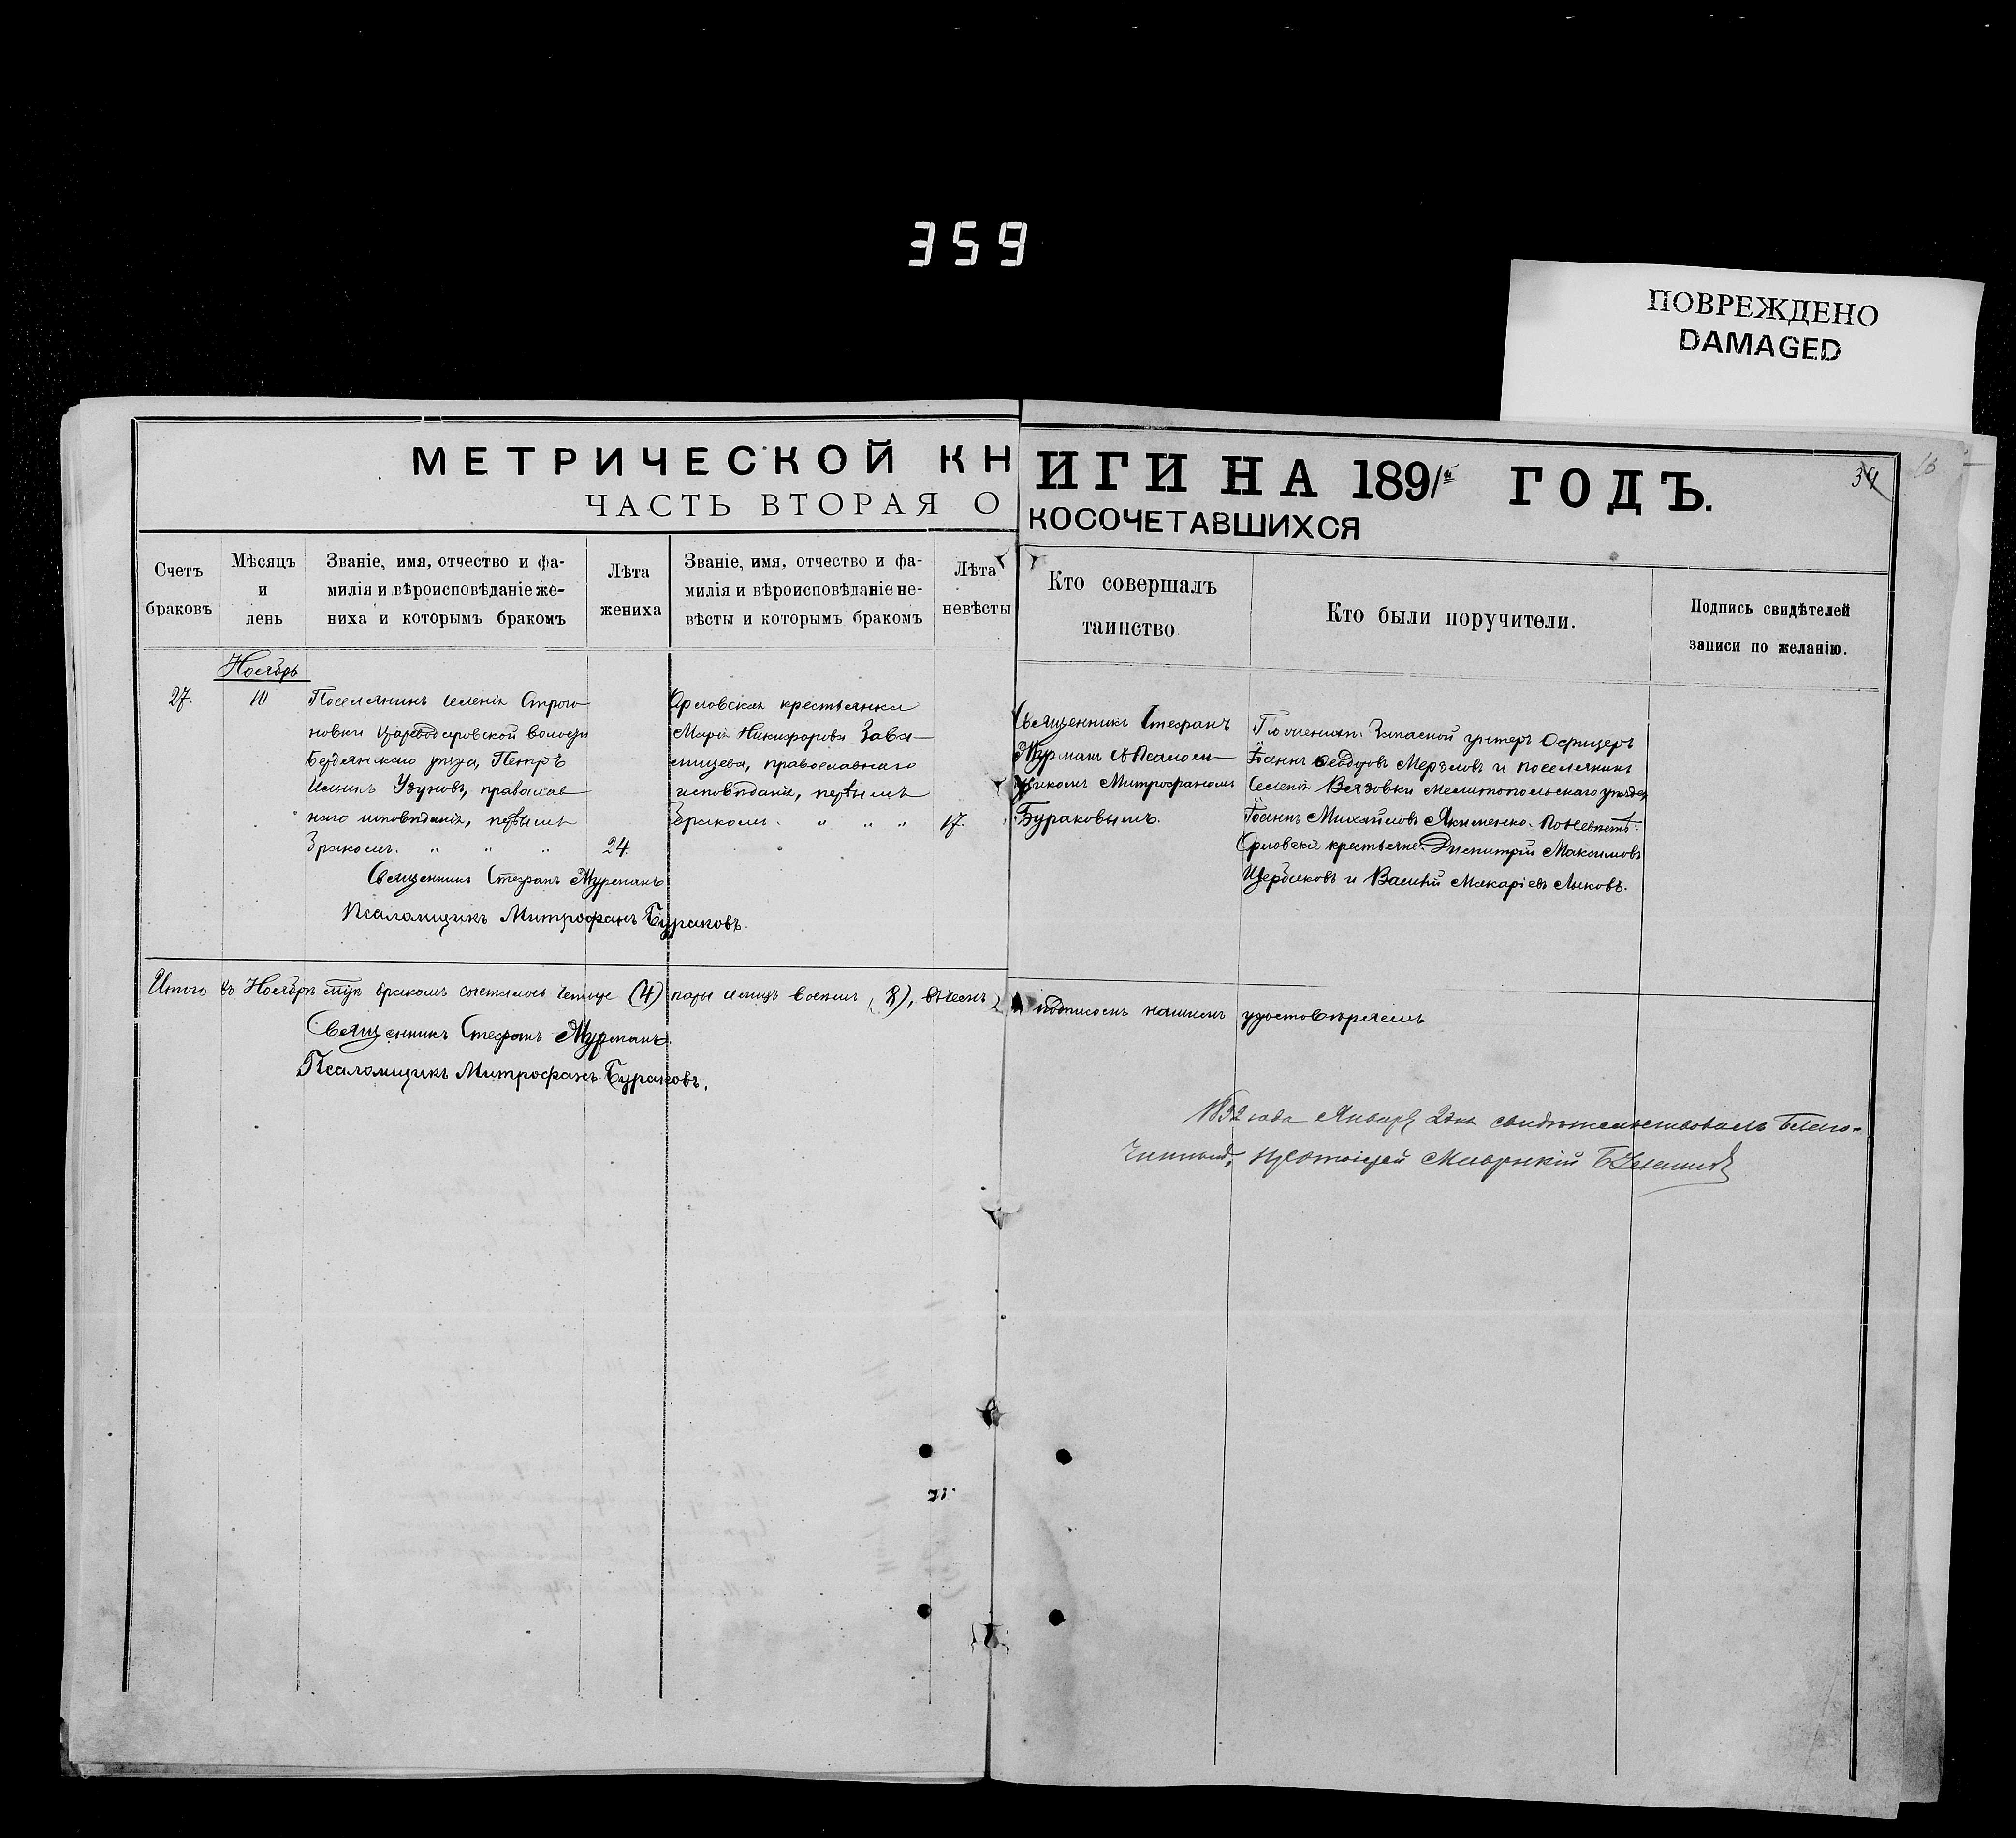 359
ПОВРЕЖДЕНО
DAMAGED
МЕТРИЧЕСКОЙ КНИГИ НА 1891й ГОДЪ.
34
16
ЧАСТЬ ВТОРАЯ О КОСОЧЕТАВШИХСЯ
Счетъ
браковъ
Мѣсяцъ
и
день
Званіе, имя, отчество и фа-
милія и вѣроисповѣданіе же-
ниха и которымъ бракомъ
Лѣта
жениха
Званіе, имя, отчество и фа-
милія и вѣроисповѣданіе не-
вѣсты и которымъ бракомъ
Лѣта
невѣсты
Кто совершалъ
таинство
Кто были поручители.
Подпись свидѣтелей
записи по желанію.
Ноябрь
27.
10
Поселянинъ селенія Строго
новки Цареводаровской волости
Бердянскаго уѣзда, Петръ
Ильинъ Узуновъ, православ
наго исповѣданія, первымъ
бракомъ. " " "
24.
Орловская крестьянка
Марія Никифорова Завя-
лицева, православнаго
исповѣданія, первымъ
бракомъ. " " "
17.
Священникъ Стефанъ
Мурманъ съ Псаломщ
икомъ Митрофаномъ
Бураковымъ.
По женихѣ: Запасной унтеръ Офицеръ
Іоаннъ Феодоровъ Мерзловъ и поселянинъ
селенія Вязовки Мелитопольскаго уѣзда,
Іоаннъ Михайловъ Якименко. По невѣстѣ:
Орловскіе крестьяне: Димитрій Максимовъ
Щербаковъ и Василій Макаріевъ Лыковъ.
Священникъ Стефанъ Мурманъ
Псаломщикъ Митрофанъ Бураковъ.
Итого въ Ноябрѣ м-цѣ бракомъ сочеталось четыре (4) пары и лицъ восемь (8), въ чемъ подписомъ нашимъ удостовѣряемъ
Священникъ Стефанъ Мурманъ.
Псаломщикъ Митрофанъ Бураковъ.
1892 года Января 2 дня свидѣтельствовалъ Благо-
чинный, Протоіерей